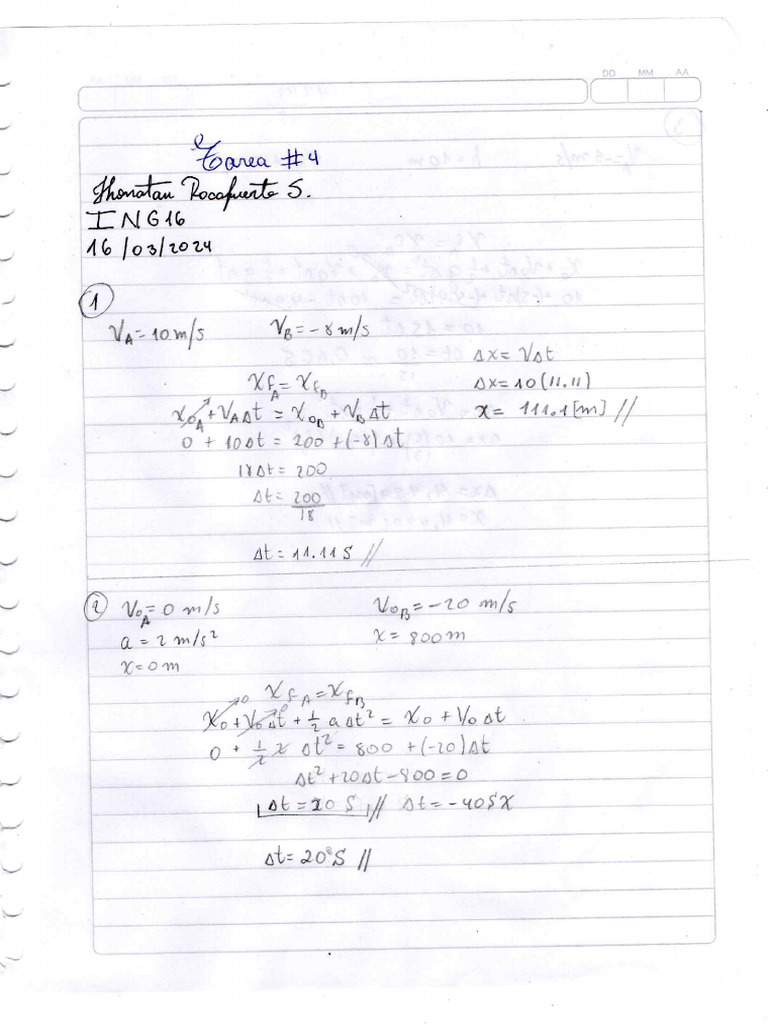 DD MM AA
Tarea #4
Jhonatan Rocafuerte S.
ING16
16/03/2024
1
V_A = 10 m/s V_B = -8 m/s
Δx = VΔt
Xf_A = Xf_B
Δx = 10(11.11)
X0_A + V_AΔt = X0_B + V_BΔt
x = 111.1 [m] //
0 + 10Δt = 200 + (-8)Δt
18Δt = 200
Δt = 200/18
Δt = 11.11 S //
2
V0_A = 0 m/s V0_B = -20 m/s
a = 2 m/s² x = 800 m
x = 0 m
Xf_A = Xf_B
X0 + V0Δt + 1/2 aΔt² = X0 + V0Δt
0 + 1/2 2 Δt² = 800 + (-20)Δt
Δt² + 20Δt - 800 = 0
Δt = 20 S // Δt = -40 S X
Δt = 20 S //